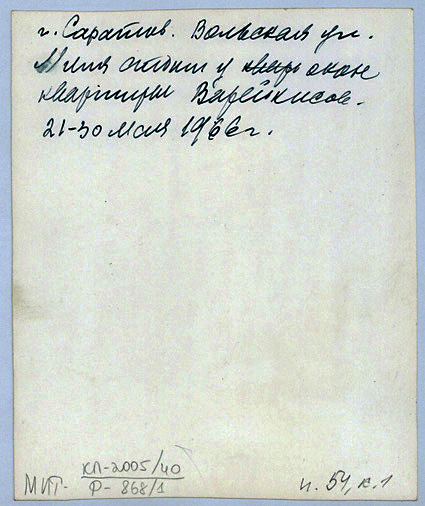 г. Саратов. Вольская ул.
Мимя стоит у квар окон
квартиры Варейкисов.
21-30 мая 1966г.
КП-2005/40
МИТ- Ф-868/1
п. 54, к.1